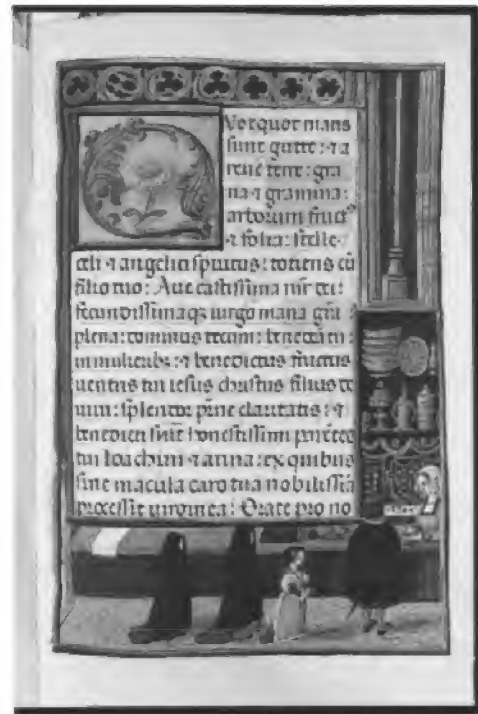 Quotquot maris
sunt gutte: ⁊ a
rene terre: gra
na ⁊ gramina:
arborum fruct⁹
⁊ folia: stelle
celi ⁊ angelici spiritus: totiens cū
filio tuo: Aue castissima mr̄ dei:
fecundissimaqꝫ uirgo maria grā
plena: dominus tecum: benedcā tu:
in mulieribꝫ: ⁊ benedictus fructus
uentris tui iesus christus filius de
uiui: splendor p̄ne claritatis: ⁊
benedicti sint honestissimi
tui Ioachim ⁊ anna: ex quibus
sine macula caro tua nobilissīa
processit uirginea: Orate pro no